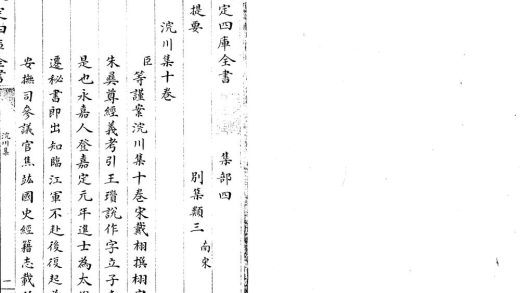 定四庫全書　集部四
提要　別集類三 南宋
浣川集十卷
臣等謹案浣川集十卷宋戴栩撰栩字
朱彝尊經義考引王瓚說作字立子
是也永嘉人登嘉定元年進士為太
遷秘書郎出知臨江軍不赴後復起
安撫司參議官焦竑國史經籍志載
定四庫全書
浣川集
一